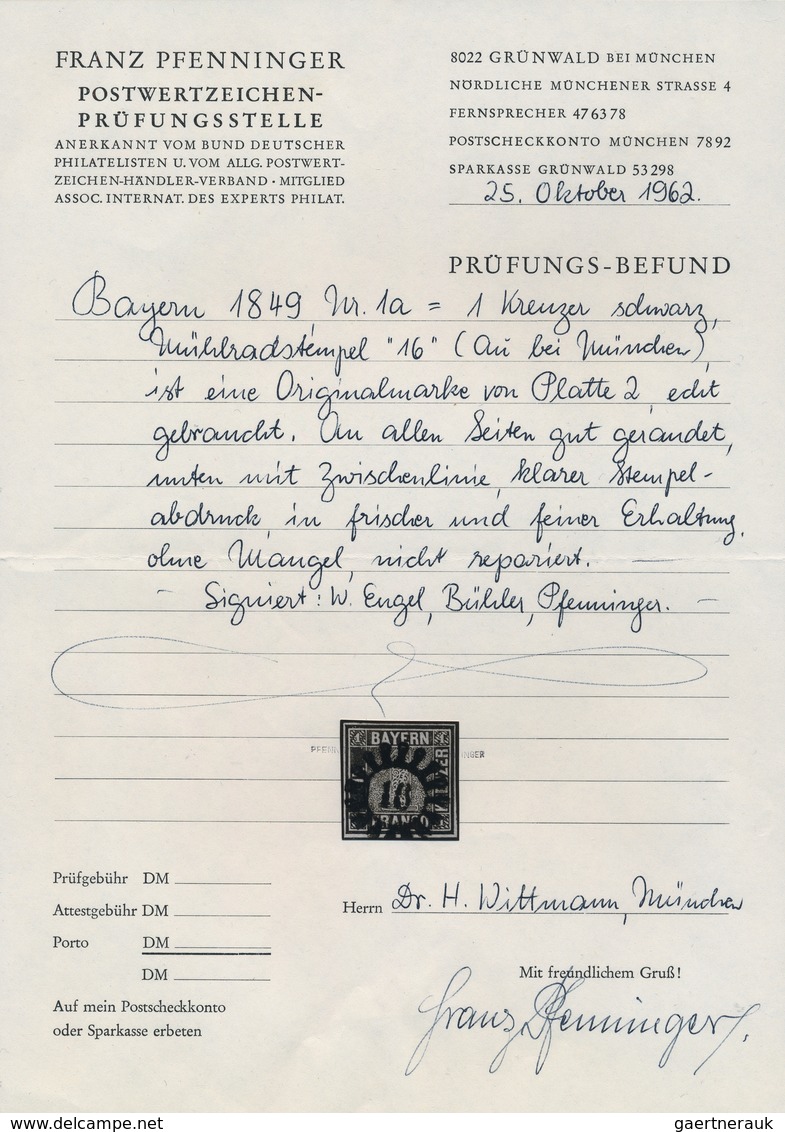 FRANZ PFENNINGER
POSTWERTZEICHEN-
PRÜFUNGSSTELLE
ANERKANNT VOM BUND DEUTSCHER
PHILATELISTEN U. VOM ALLG. POSTWERT-
ZEICHEN-HÄNDLER-VERBAND · MITGLIED
ASSOC. INTERNAT. DES EXPERTS PHILAT.
8022 GRÜNWALD BEI MÜNCHEN
NÖRDLICHE MÜNCHENER STRASSE 4
FERNSPRECHER 476378
POSTSCHECKKONTO MÜNCHEN 7892
SPARKASSE GRÜNWALD 53298
25. Oktober 1962.
PRÜFUNGS-BEFUND
Bayern 1849, Nr. 1a = 1 Kreuzer schwarz,
Mühlradstempel "16" (Au bei München),
ist eine Originalmarke von Platte 2, echt
gebraucht. An allen Seiten gut gerandet,
unten mit Zwischenlinie, klarer Stempel-
abdruck, in frischer und feiner Erhaltung,
ohne Mängel, nicht repariert. —
– Signiert: W. Engel, Bühler, Pfenninger. –
PFENN INGER
BAYERN
16
FRANCO
Prüfgebühr DM
Attestgebühr DM
Porto DM
DM
Auf mein Postscheckkonto
oder Sparkasse erbeten
Herrn Dr. H. Wittmann, München
Mit freundlichem Gruß!
Franz Pfenninger.
www.delcampe.net
gaertnerauk